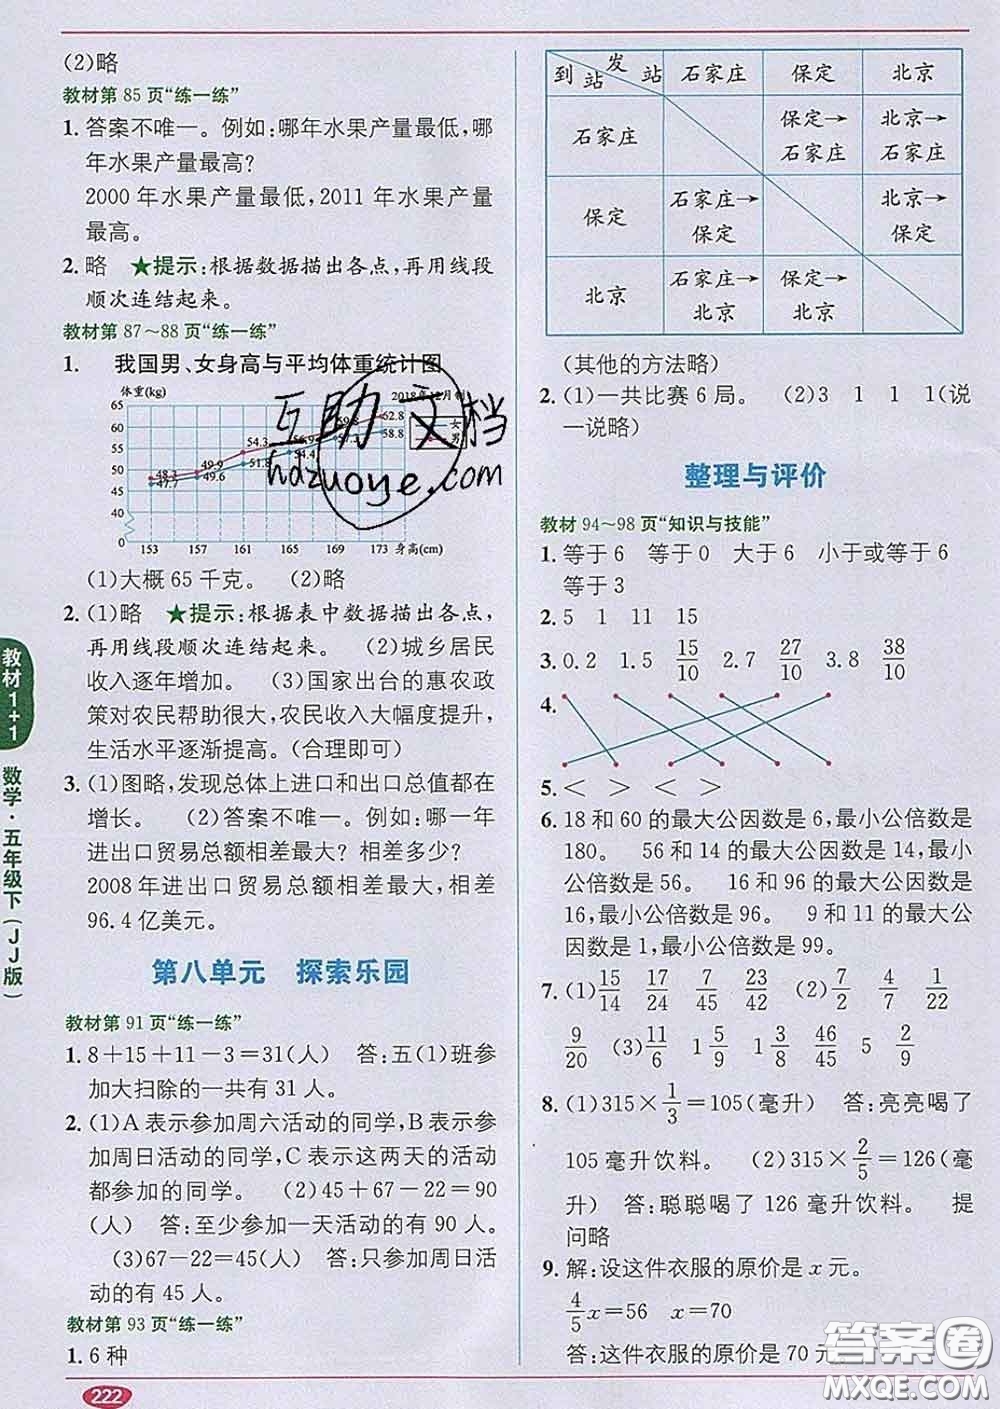 (2)略
教材第 85 页“练一练”
1. 答案不唯一。例如:哪年水果产量最低,哪
年水果产量最高?
2000 年水果产量最低,2011 年水果产量
最高。
2. 略 ★提示:根据数据描出各点,再用线段
顺次连结起来。
教材第 87～88 页“练一练”
1. 我国男、女身高与平均体重统计图
体重(kg)
2018年12月制
女
男
65
60
55
50
45
40
0
48.3 49.9 54.3 56.9 59.8 62.8
47.7 49.6 51.8 54.4 57.1 58.8
153 157 161 165 169 173 身高(cm)
互助文档
hdzuoye.com
(1)大概 65 千克。 (2)略
2. (1)略 ★提示:根据表中数据描出各点,
再用线段顺次连结起来。 (2)城乡居民
收入逐年增加。 (3)国家出台的惠农政
策对农民帮助很大,农民收入大幅度提升,
生活水平逐渐提高。(合理即可)
3. (1)图略,发现总体上进口和出口总值都在
增长。 (2)答案不唯一。例如:哪一年
进出口贸易总额相差最大? 相差多少?
2008 年进出口贸易总额相差最大,相差
96.4 亿美元。
第八单元 探索乐园
教材第 91 页“练一练”
1. 8+15+11-3=31(人) 答:五(1)班参
加大扫除的一共有 31 人。
2. (1)A 表示参加周六活动的同学,B 表示参
加周日活动的同学,C 表示这两天的活动
都参加的同学。 (2)45+67-22=90
(人) 答:至少参加一天活动的有 90 人。
(3)67-22=45(人) 答:只参加周日活
动的有 45 人。
教材第 93 页“练一练”
1. 6 种
222
教材1+1 数学·五年级下(JJ版)
到站 发站 石家庄 保定 北京
石家庄 保定→石家庄 北京→石家庄
保定 石家庄→保定 北京→保定
北京 石家庄→北京 保定→北京
(其他的方法略)
2. (1)一共比赛 6 局。 (2)3 1 1 1(说
一说略)
整理与评价
教材 94～98 页“知识与技能”
1. 等于 6 等于 0 大于 6 小于或等于 6
等于 3
2. 5 1 11 15
3. 0.2 1.5 15/10 2.7 27/10 3.8 38/10
4.
5. < > < >
6. 18 和 60 的最大公因数是 6,最小公倍数是
180。 56 和 14 的最大公因数是 14,最小
公倍数是 56。 16 和 96 的最大公因数是
16,最小公倍数是 96。 9 和 11 的最大公
因数是 1,最小公倍数是 99。
7. (1)15/14 17/24 7/45 2/52 (2)7/2 4/7 1/22
9/20 (3)11/6 1 5/9 1 3/8 46/45 5 2/9
8. (1)315×1/3=105(毫升) 答:亮亮喝了
105 毫升饮料。 (2)315×2/5=126(毫
升) 答:聪聪喝了 126 毫升饮料。 提
问略
9. 解:设这件衣服的原价是 x 元。
4/5x=56 x=70
答:这件衣服的原价是 70 元
答案圈
MXQE.COM